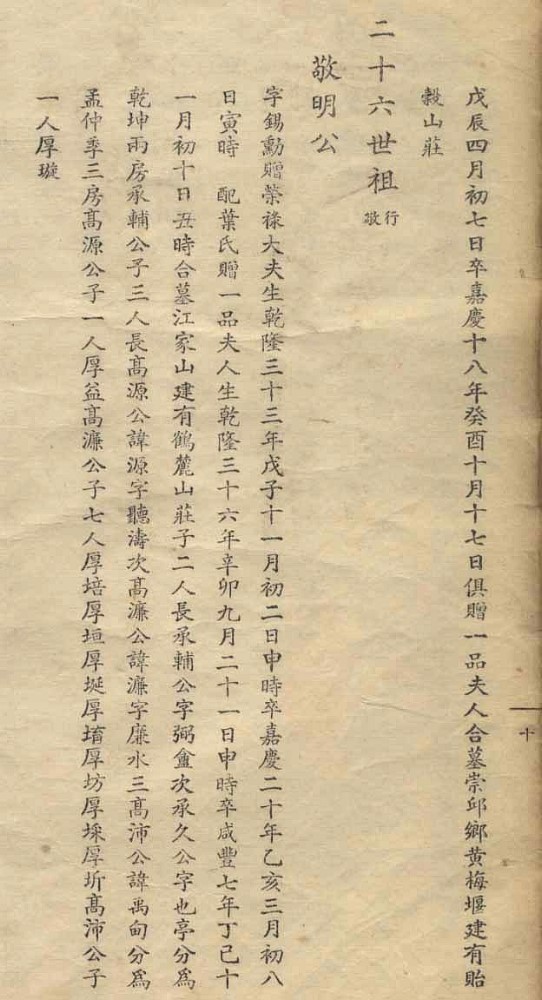 戊辰四月初七日卒嘉慶十八年癸酉十月十七日俱贈一品夫人合墓崇邱鄉黄梅堰建有貽
穀山莊
二十六世祖 敬行
敬明公
字錫勳贈榮祿大夫生乾隆三十三年戊子十一月初二日申時卒嘉慶二十年乙亥三月初八
日寅時 配葉氏贈一品夫人生乾隆三十六年辛卯九月二十一日申時卒咸豐七年丁巳十
一月初十日丑時合墓江家山建有鶴麓山莊子二人長承輔公字弼盦次承久公字也亭分為
乾坤兩房承輔公子三人長髙源公諱源字聽濤次髙濂公諱濂字廉水三髙沛公諱禹甸分為
孟仲季三房髙源公子一人厚益髙濂公子七人厚培厚垣厚埏厚堉厚坊厚埰厚圻髙沛公子
一人厚璇
十